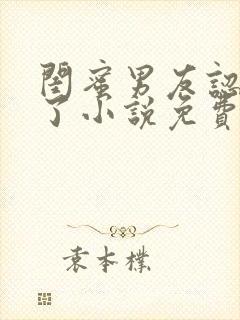 閨蜜男友認
了小說免費
袁本樸